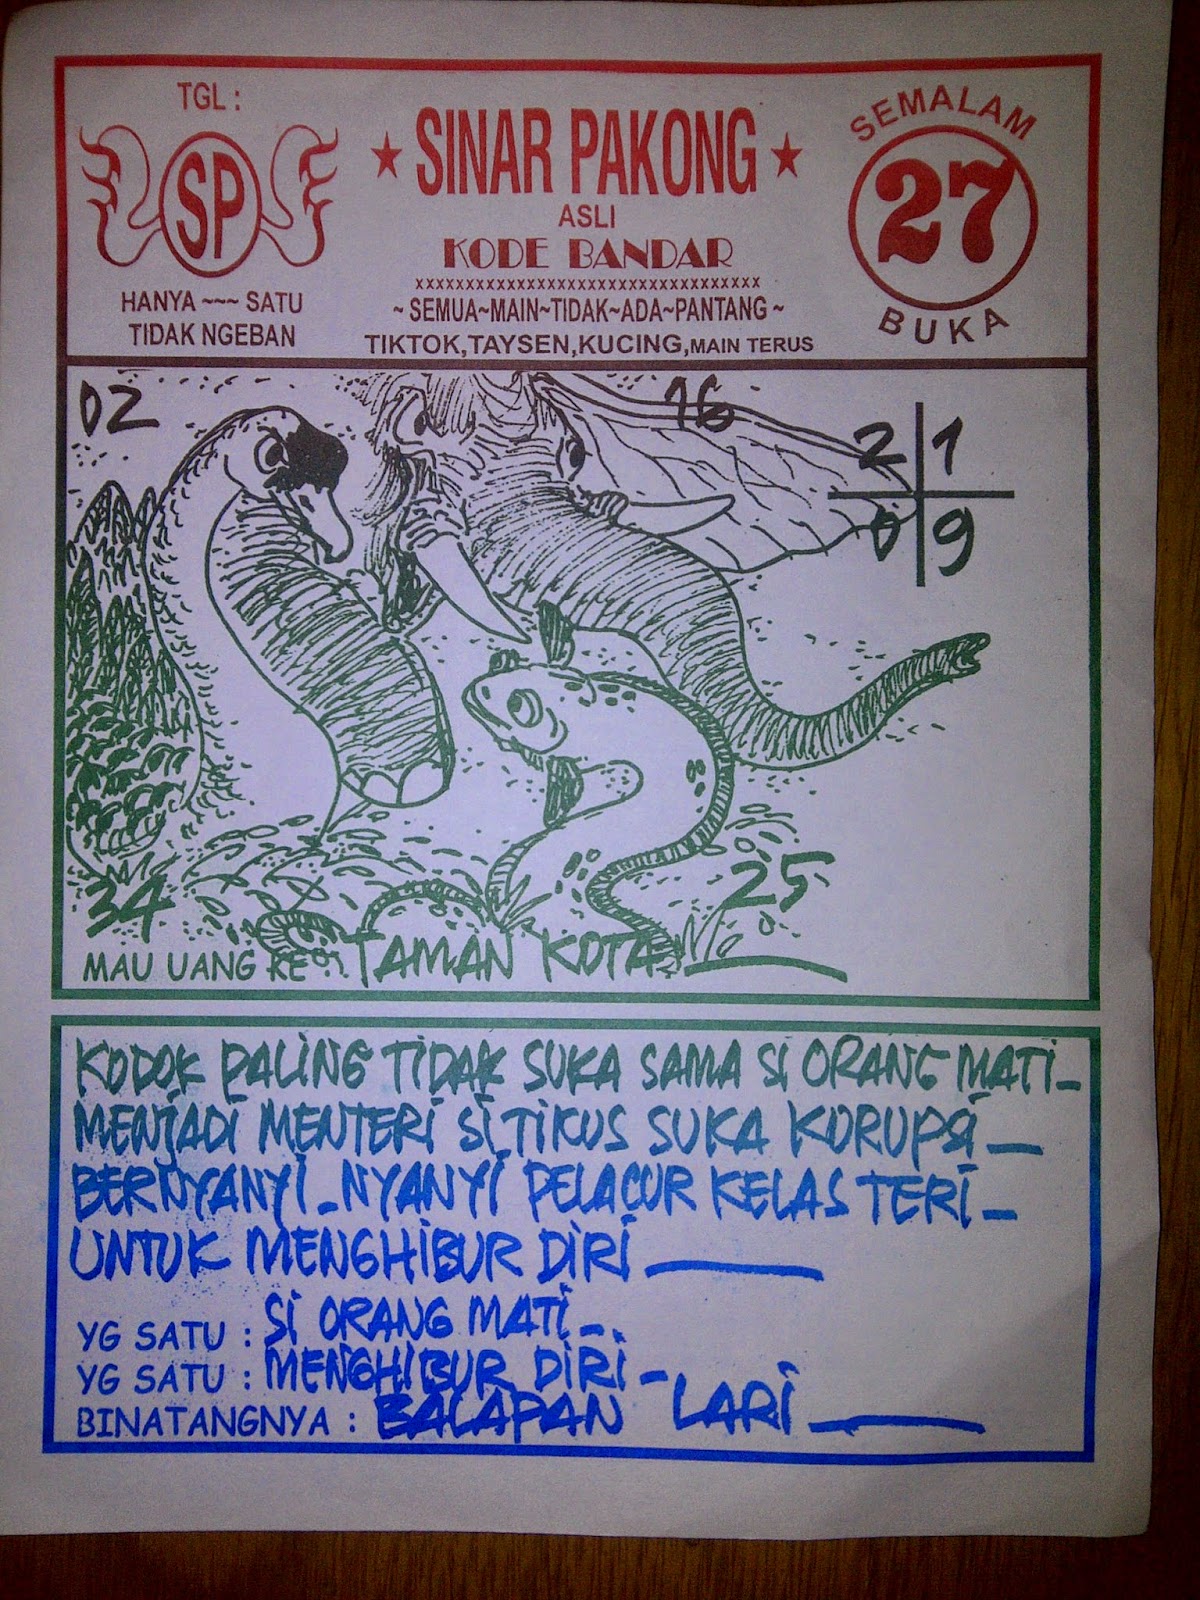 TGL :
SP
HANYA ~~~ SATU
TIDAK NGEBAN
★ SINAR PAKONG ★
ASLI
KODE BANDAR
xxxxxxxxxxxxxxxxxxxxxxxxxxxxxxxxx
~ SEMUA~MAIN~TIDAK~ADA~PANTANG ~
TIKTOK,TAYSEN,KUCING,MAIN TERUS
SEMALAM
27
BUKA
02
16
2 1
0 9
34
25
MAU UANG KE : TAMAN KOTA
KODOK PALING TIDAK SUKA SAMA SI ORANG MATI_
MENJADI MENTERI SI TIKUS SUKA KORUPSI _
BERNYANYI_NYANYI PELACUR KELAS TERI _
UNTUK MENGHIBUR DIRI _
YG SATU : SI ORANG MATI _
YG SATU : MENGHIBUR DIRI _
BINATANGNYA : BALAPAN LARI _